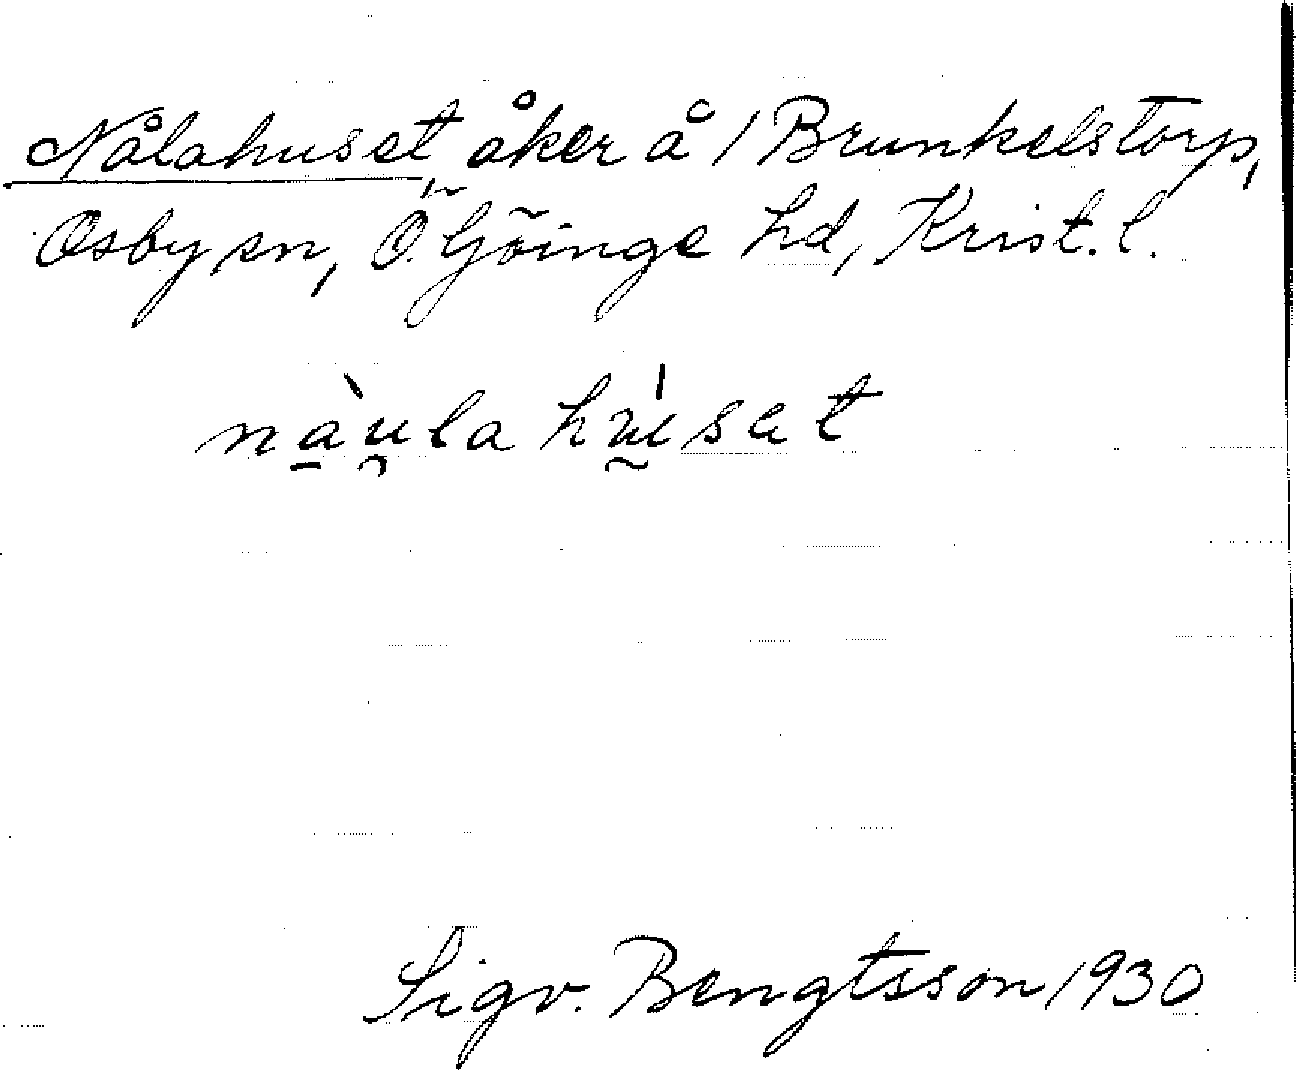 Nålahuset, åker å 1 Brunkelstorp,
Osby sn, Ö. Göinge hd, Krist. l.
nàu̯la hú̯sət
Sigv. Bengtsson 1930